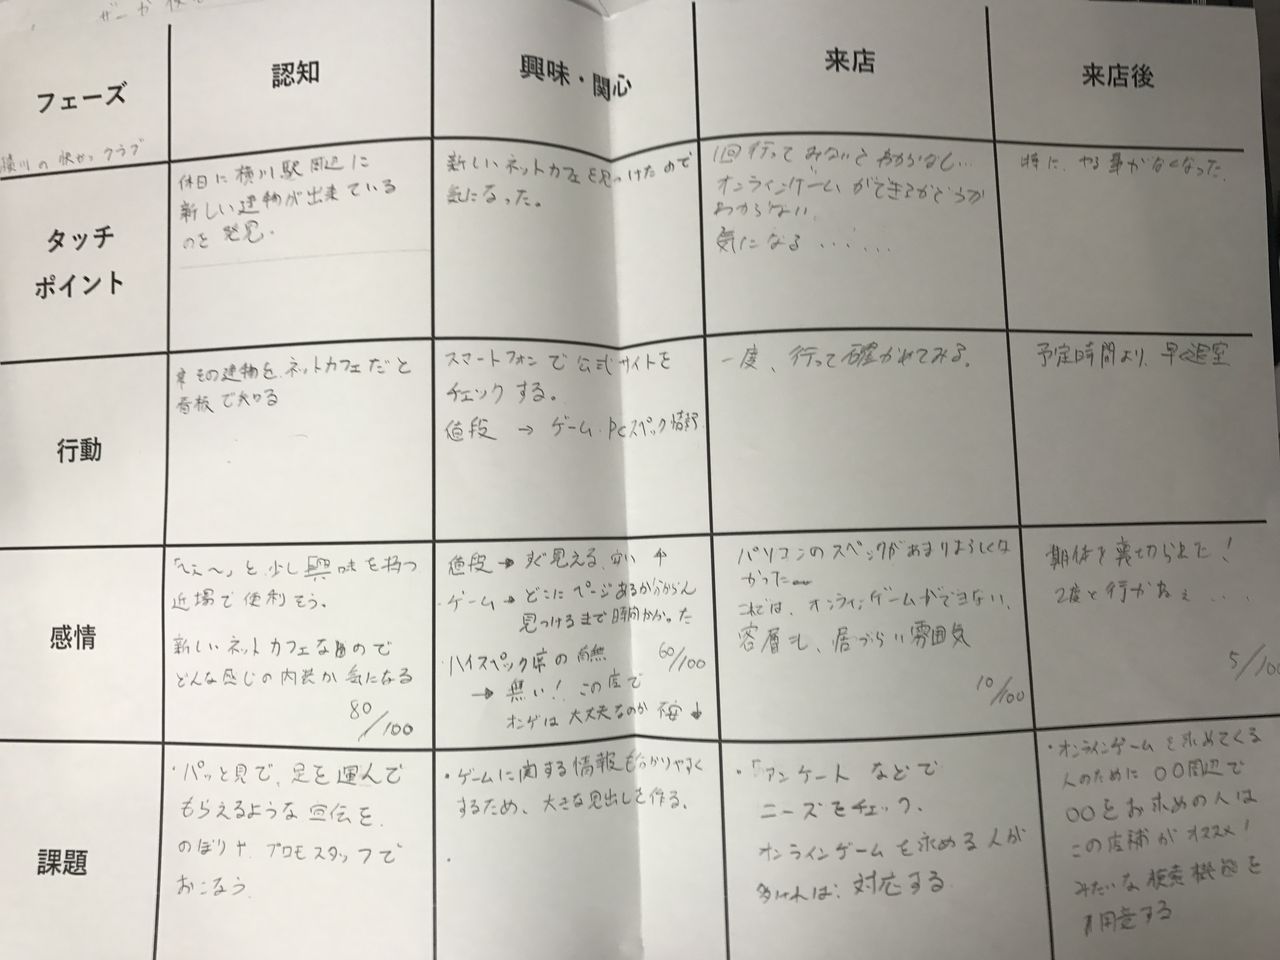 フェーズ
認知
興味・関心
来店
来店後
横川の快活クラブ
タッチ
ポイント
休日に横川駅周辺に
新しい建物が出来ている
のを発見.
新しいネットカフェを見つけたので
気になった。
1回行ってみないとわからなし…
オンラインゲームができるかどうか
わからない.
気になる……
時に、やる事がなくなった.
行動
その建物を、ネットカフェだと
看板で知る
スマートフォンで公式サイトを
チェックする。
値段 → ゲーム・PCスペック情報
一度、行って確かめてみる。
予定時間より、早く退室
感情
「へぇ〜」と少し興味を持つ
近場で便利そう。
新しいネットカフェなので
どんな感じの内装か気になる
80/100
値段 → すぐ見える、安い ↑
・ゲーム → どこにページあるか分からん
見つけるまで時間かかった
・ハイスペック席の有無
60/100
→ 無い! この店で
オンゲは大丈夫なのか 不安 ↓
パソコンのスペックがあまりよろしくな
かった
これでは、オンラインゲームができない、
客層も、居づらい雰囲気
10/100
期待を裏切られた!
2度と行かねぇ...
5/100
課題
・パッと見で、足を運んで
もらえるような宣伝を、
のぼりや、プロモスタッフで
おこなう
・ゲームに関する情報も分かりやすく
するため、大きな見出しを作る、
・アンケートなどで
ニーズをチェック、
オンラインゲームを求める人が
多ければ、対応する
・オンラインゲームを求めてくる
人のために〇〇周辺で
〇〇をお求めの人は
この店舗がオススメ!
みたいな検索機能を
用意する